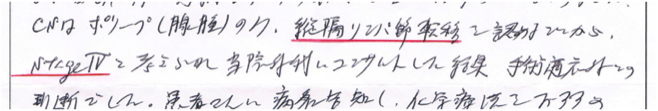 CNはポリープ(腺腫)のみ、縦隔リンパ節転移を認めることから、
stage IVと考えられ当院外科にコンサルトした結果 手術適応外との
判断でした。患者さんに病名告知し、化学療法を